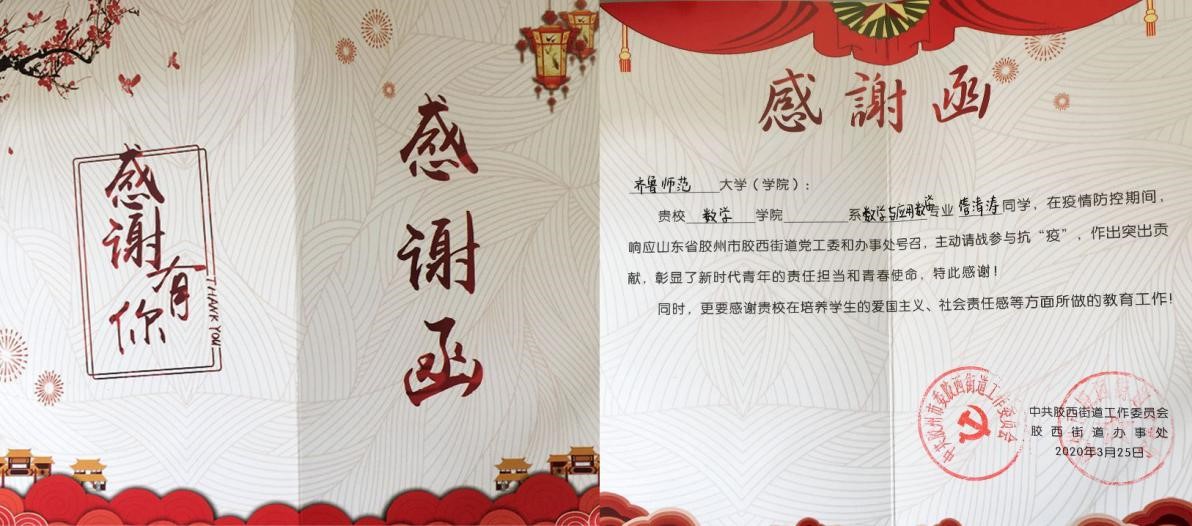 感谢有你
THANK YOU
感谢函
感謝函
齐鲁师范大学（学院）：
贵校数学学院系数学与应用数学专业清涛同学，在疫情防控期间，
响应山东省胶州市胶西街道党工委和办事处号召，主动请战参与抗“疫”，作出突出贡
献，彰显了新时代青年的责任担当和青春使命，特此感谢！
同时，更要感谢贵校在培养学生的爱国主义、社会责任感等方面所做的教育工作！
中共胶州市委胶西街道工作委员会
中共胶西街道工作委员会
胶西街道办事处
2020年3月25日